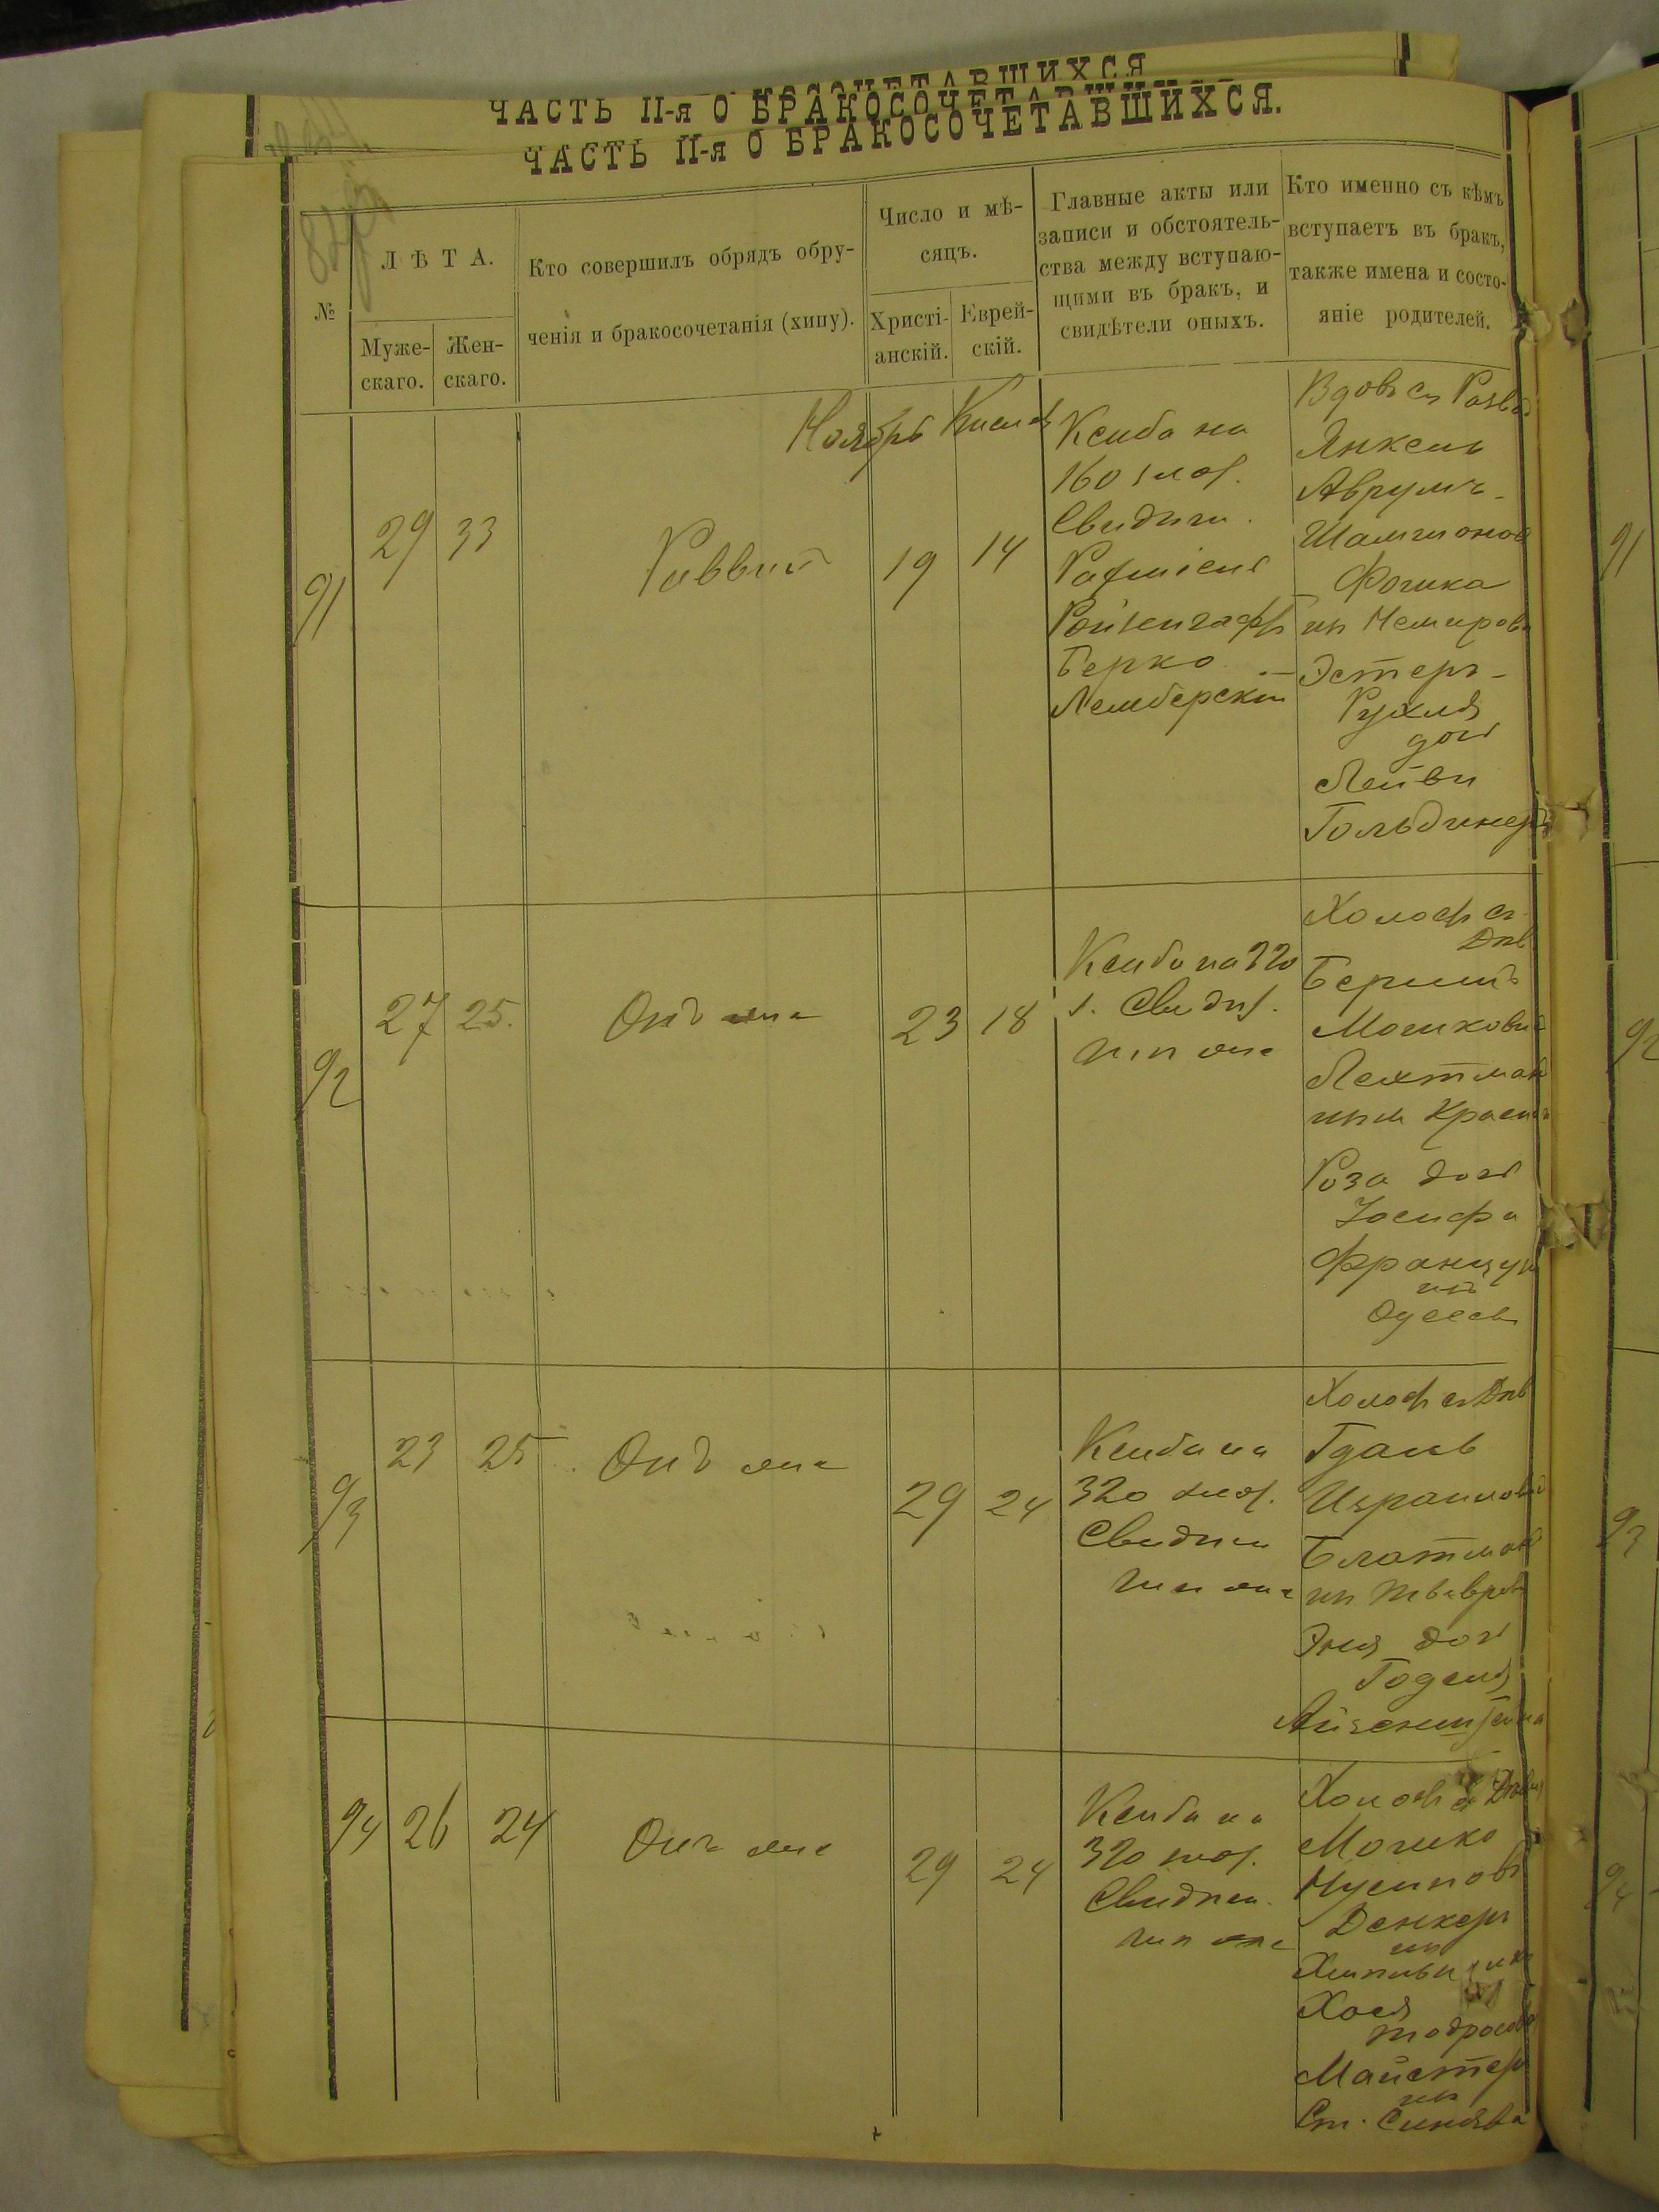 ЧАСТЬ II-я О БРАКОСОЧЕТАВШИХСЯ
ЧАСТЬ II-я О БРАКОСОЧЕТАВШИХСЯ.
№
ЛѢТА.
Муже-
скаго.
Жен-
скаго.
Кто совершилъ обрядъ обру-
ченія и бракосочетанія (хипу).
Число и мѣ-
сяцъ.
Христі-
анскій.
Еврей-
скій.
Главные акты или
записи и обстоятель-
ства между вступаю-
щими въ бракъ, и
свидѣтели оныхъ.
Кто именно съ кѣмъ
вступаетъ въ бракъ,
также имена и состо-
яніе родителей.
Ноябрь
91
29
33
Раввин
19
14
Ксиба на
160 злот.
Свидит.
Берко
Лемберскій
Вдовъ съ Развод
Янкель
Аврумъ-
Немирова
Эстеръ-
Рухля
доч
Лейви
Гольдинер
92
27
25.
Онъ же
23
18
Ксиба на 320
з. Свидѣт.
тѣ же
Холост съ
Дѣв
Берш
Мошков
Лехтман
Роза доч
Іосифа
Француз
изъ
Одессы
93
23
25
Онъ же
29
24
Ксиба на
320 злот.
Свидит
тѣ же
Холост съ Дѣв
Гдаль
Израилов
Блатман
Эня доч
Годеля
Айзенштейна
94
26
24
Онъ же
29
24
Ксиба на
320 злот.
Свидит.
тѣ же
Холост съ Дѣви
Мошко
Нусинов
Денкеръ
из
Хася
Тодросов
Майстер
из
Ст. Синява
91
92
93
94